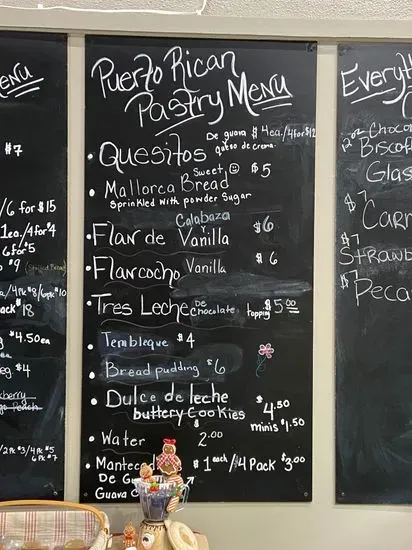 Menu
#7
/6 for $15
1ea./4for$4
6for$5
$9 (Stuffed Bread)
/4Pk $8/6pk $10
ack $18
$4.50ea
eg $4
Peach
2Pk $3/4Pk $5
6Pk $7
Puerto Rican
Pastry Menu
• Quesitos De guava $4ea./4for$12
queso de crema.
• Mallorca Bread Sweet $5
Sprinkled with powder Sugar
• Flan de Calabaza y Vanilla $6
• Flancocho Vanilla $6
• Tres Leche De chocolate topping $5.00
• Tembleque $4
• Bread pudding $6
• Dulce de leche
buttery Cookies $4.50
minis $1.50
• Water $2.00
• Mantec $1 each/$4 Pack $3.00
De Gu
Guava
Every
2oz Choco
Biscof
Glas
$7
Carr
$7
Strawb
$7
Peca